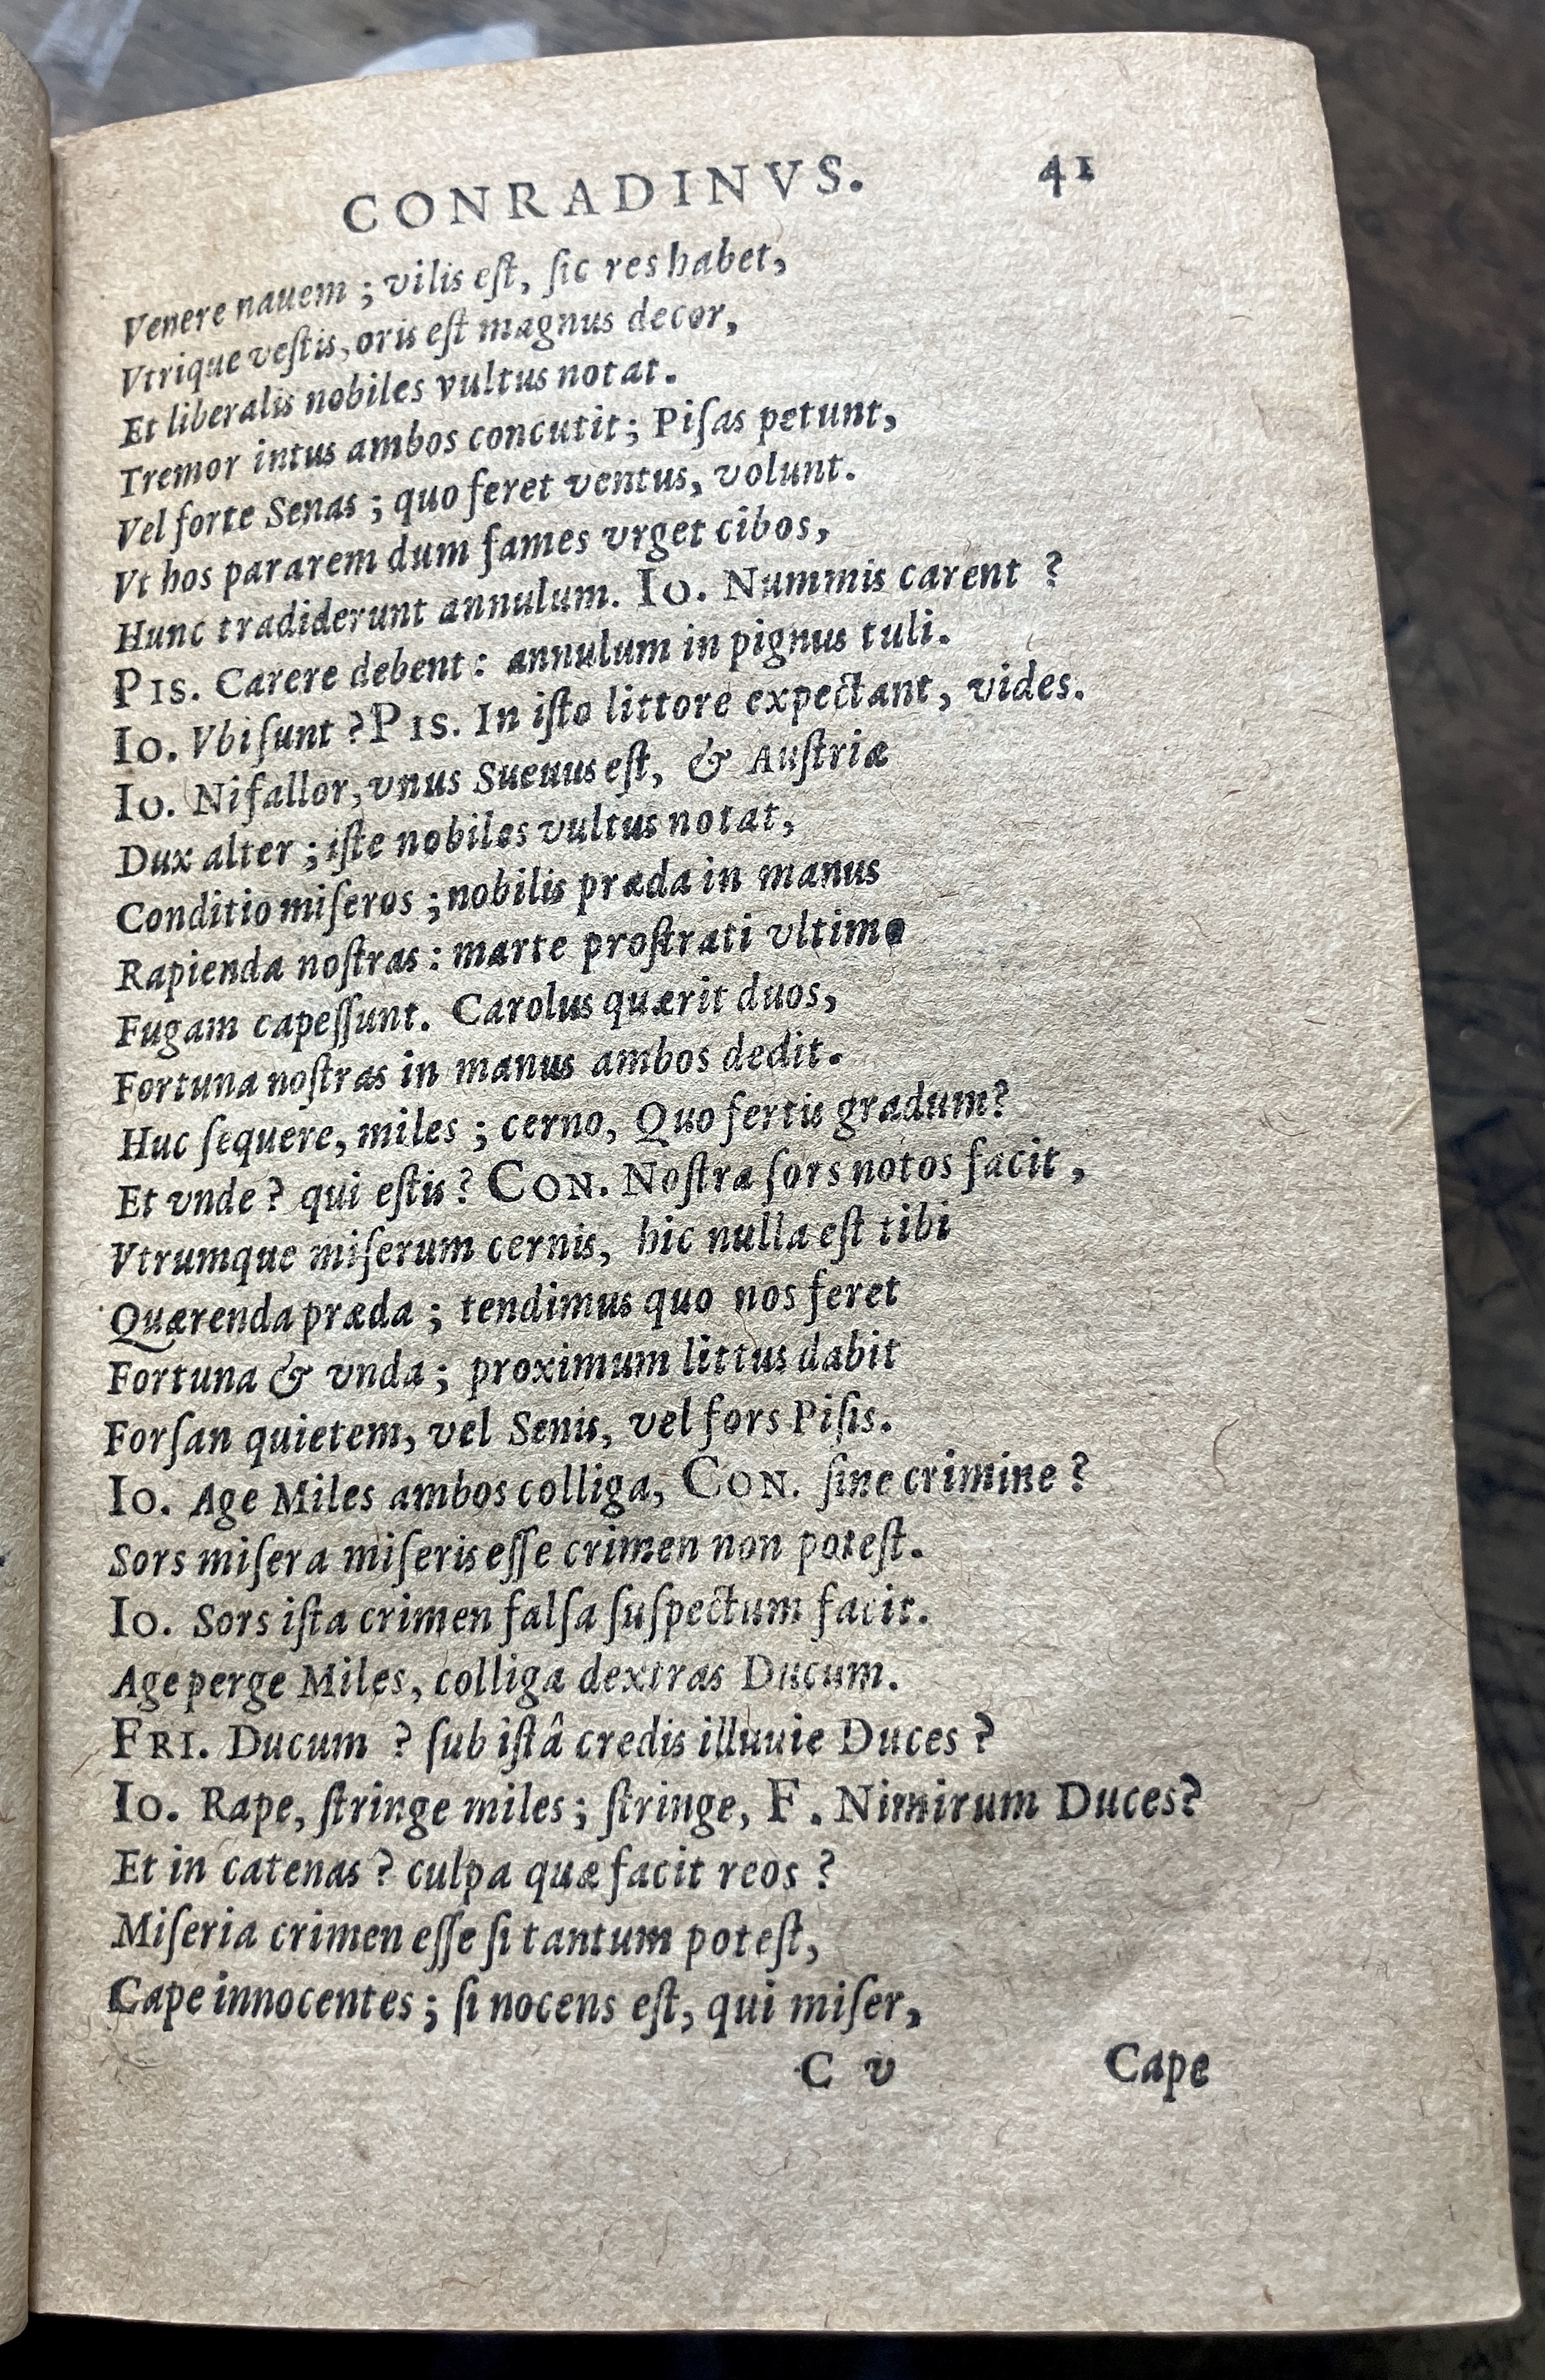 CONRADINVS. 41
Venere nauem ; vilis eſt, ſic res habet,
Vtrique veſtis, oris eſt magnus decor,
Et liberalis nobiles vultus notat.
Tremor intus ambos concutit ; Piſas petunt,
Vel forte Senas ; quo feret ventus, volunt.
Vt hos pararem dum fames vrget cibos,
Hunc tradiderunt annulum. Io. Nummis carent ?
Pis. Carere debent : annulum in pignus tuli.
Io. Vbi ſunt ? Pis. In iſto littore expectant, vides.
Io. Ni fallor, vnus Sueuus eſt, & Auſtriæ
Dux alter ; iſte nobiles vultus notat,
Conditio miſeros ; nobilis præda in manus
Rapienda noſtras : marte proſtrati vltimo
Fugam capeſſunt. Carolus quærit duos,
Fortuna noſtras in manus ambos dedit.
Huc ſequere, miles ; cerno, Quo fertis gradum?
Et vnde ? qui eſtis ? Con. Noſtra ſors notos facit ,
Vtrumque miſerum cernis, hic nulla eſt tibi
Quærenda præda ; tendimus quo nos feret
Fortuna & vnda ; proximum littus dabit
Forſan quietem, vel Senis, vel fors Piſis.
Io. Age Miles ambos colliga, Con. ſine crimine ?
Sors miſera miſeris eſſe crimen non poteſt.
Io. Sors iſta crimen falſa ſuſpectum facit.
Age perge Miles, colliga dextras Ducum.
Fri. Ducum ? ſub iſtâ credis illuuie Duces ?
Io. Rape, ſtringe miles ; ſtringe, F. Nimirum Duces?
Et in catenas ? culpa quæ facit reos ?
Miſeria crimen eſſe ſi tantum poteſt,
Cape innocentes ; ſi nocens eſt, qui miſer,
C v Cape